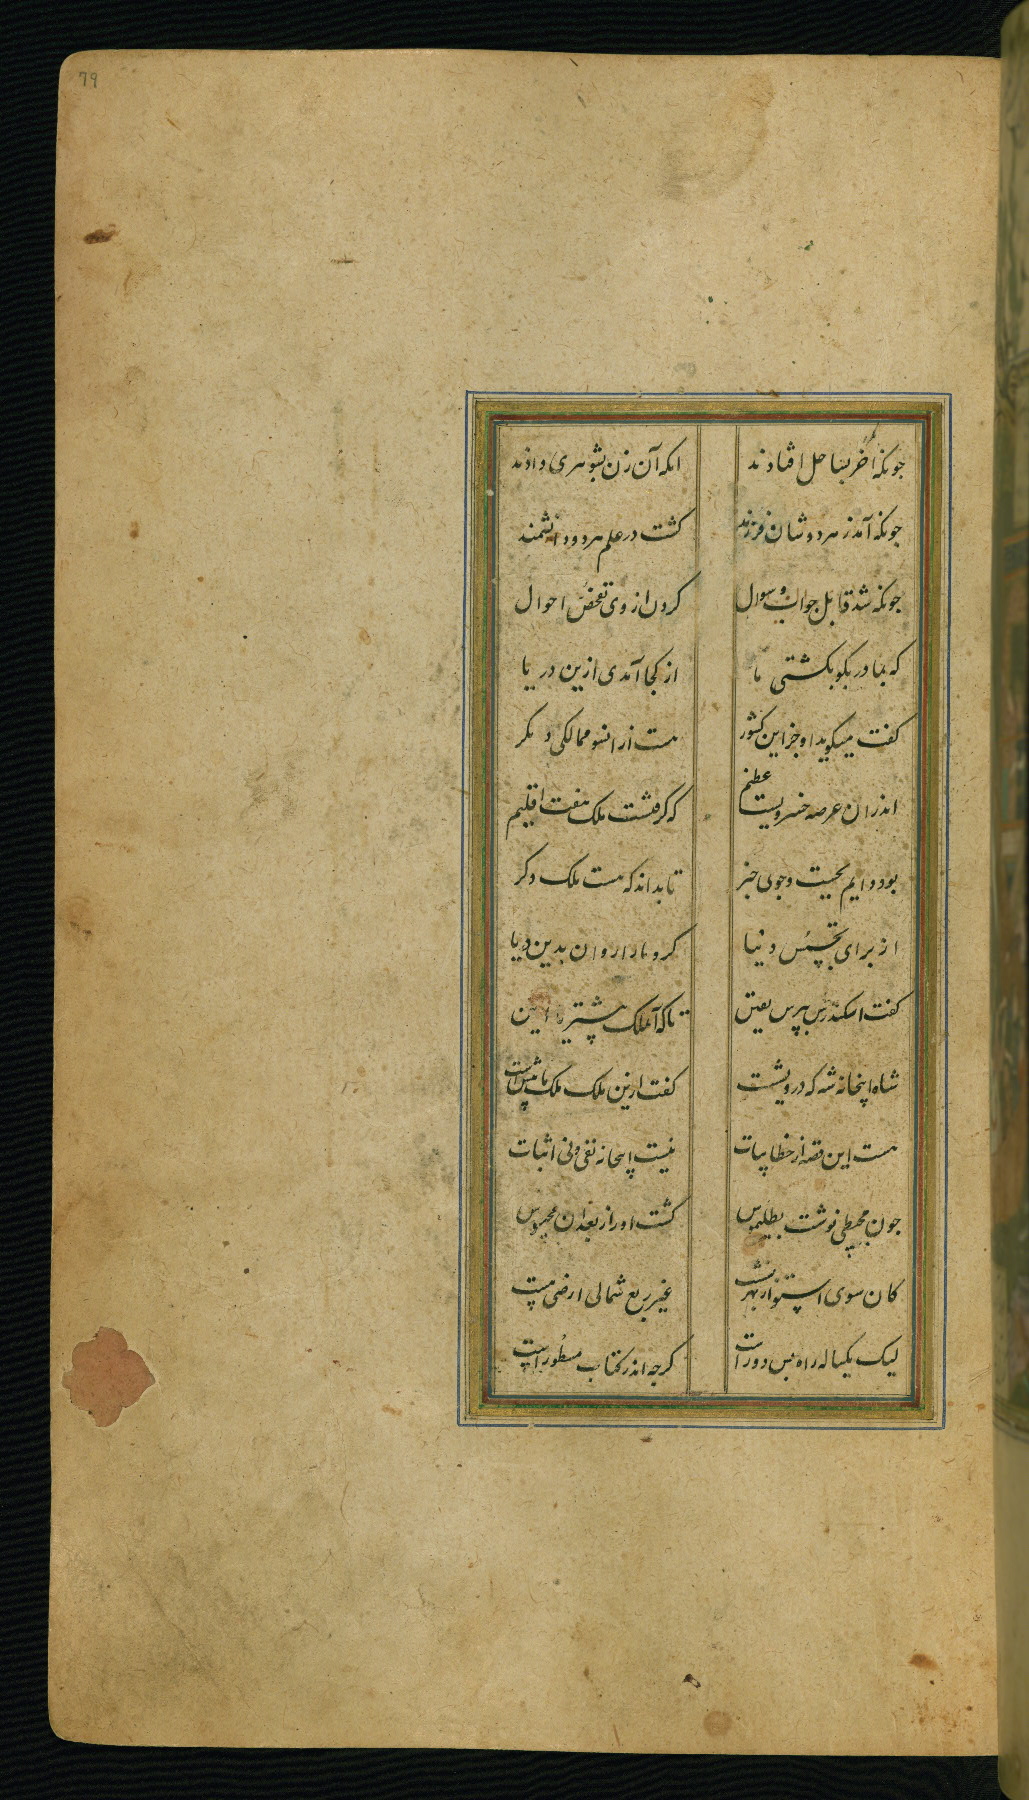 79
جونکه آخر بساحل افتادند انکه آن زن بشوهری دادند
جونکه آمد ز هر دوشان فرزند کشت در علم هر دو دانشمند
جونکه شد قابل جواب و سوال کردن از وی تفحص احوال
که بمادر بکو بکشتی ما از کجا آمدی ازین دریا
کفت میکوید او جز این کشور هست از انسو ممالکی دیکر
اندران عرصه خسرویست عظیم که کرفتست ملک هفت اقلیم
بود دایم بجست و جوی خبر تا بداند که هست ملک دکر
از برای تجسس دنیا کرد ما را روان بدین دریا
کفت اسکندرس بپرس یقین تا که آنملک بیشتر یا این
شاه اینجا نه شه که درویشست کفت ازین ملک ملک ما بیش است
هست این قصه از خطابیات نیست اینجا نه نفی و نی اثبات
جون مجسطی نوشت بطلمیوس کشت او را ز بعد ان محسوس
کان سوی استوا ز بهر نشست غیر ربع شمالی ارضی هست
لیک یکساله راه بس دور است کرجه اندر کتاب مسطور است